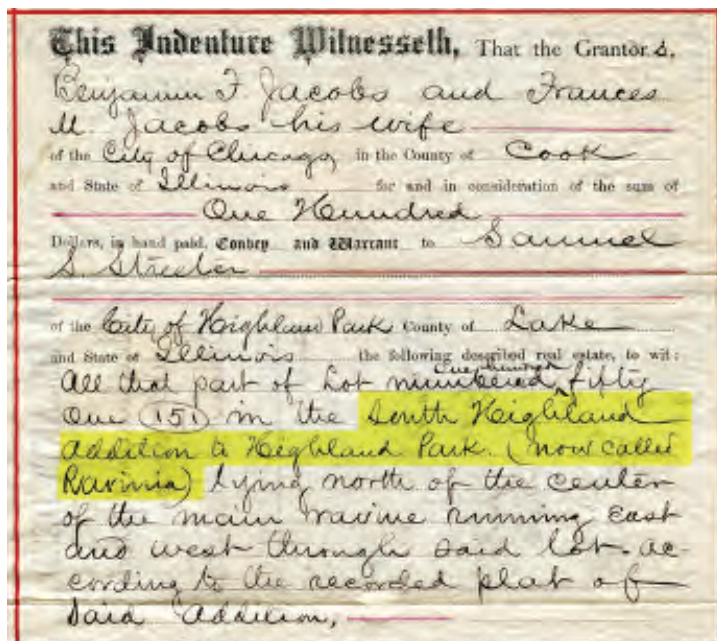 This Indenture Witnesseth, That the Grantor s,
Benjamin F. Jacobs and Frances
M. Jacobs his wife
of the City of Chicago, in the County of Cook
and State of Illinois for and in consideration of the sum of
One Hundred
Dollars, in hand paid, Convey and Warrant to Samuel
S. Streeter
of the City of Highland Park County of Lake
and State of Illinois the following described real estate, to wit:
All that part of Lot numbered one hundred fifty
One (151) in the South Highland
Addition to Highland Park. (now called
Ravinia) lying north of the center
of the main ravine running East
and west through said lot. ac-
cording to the recorded plat of
said addition,